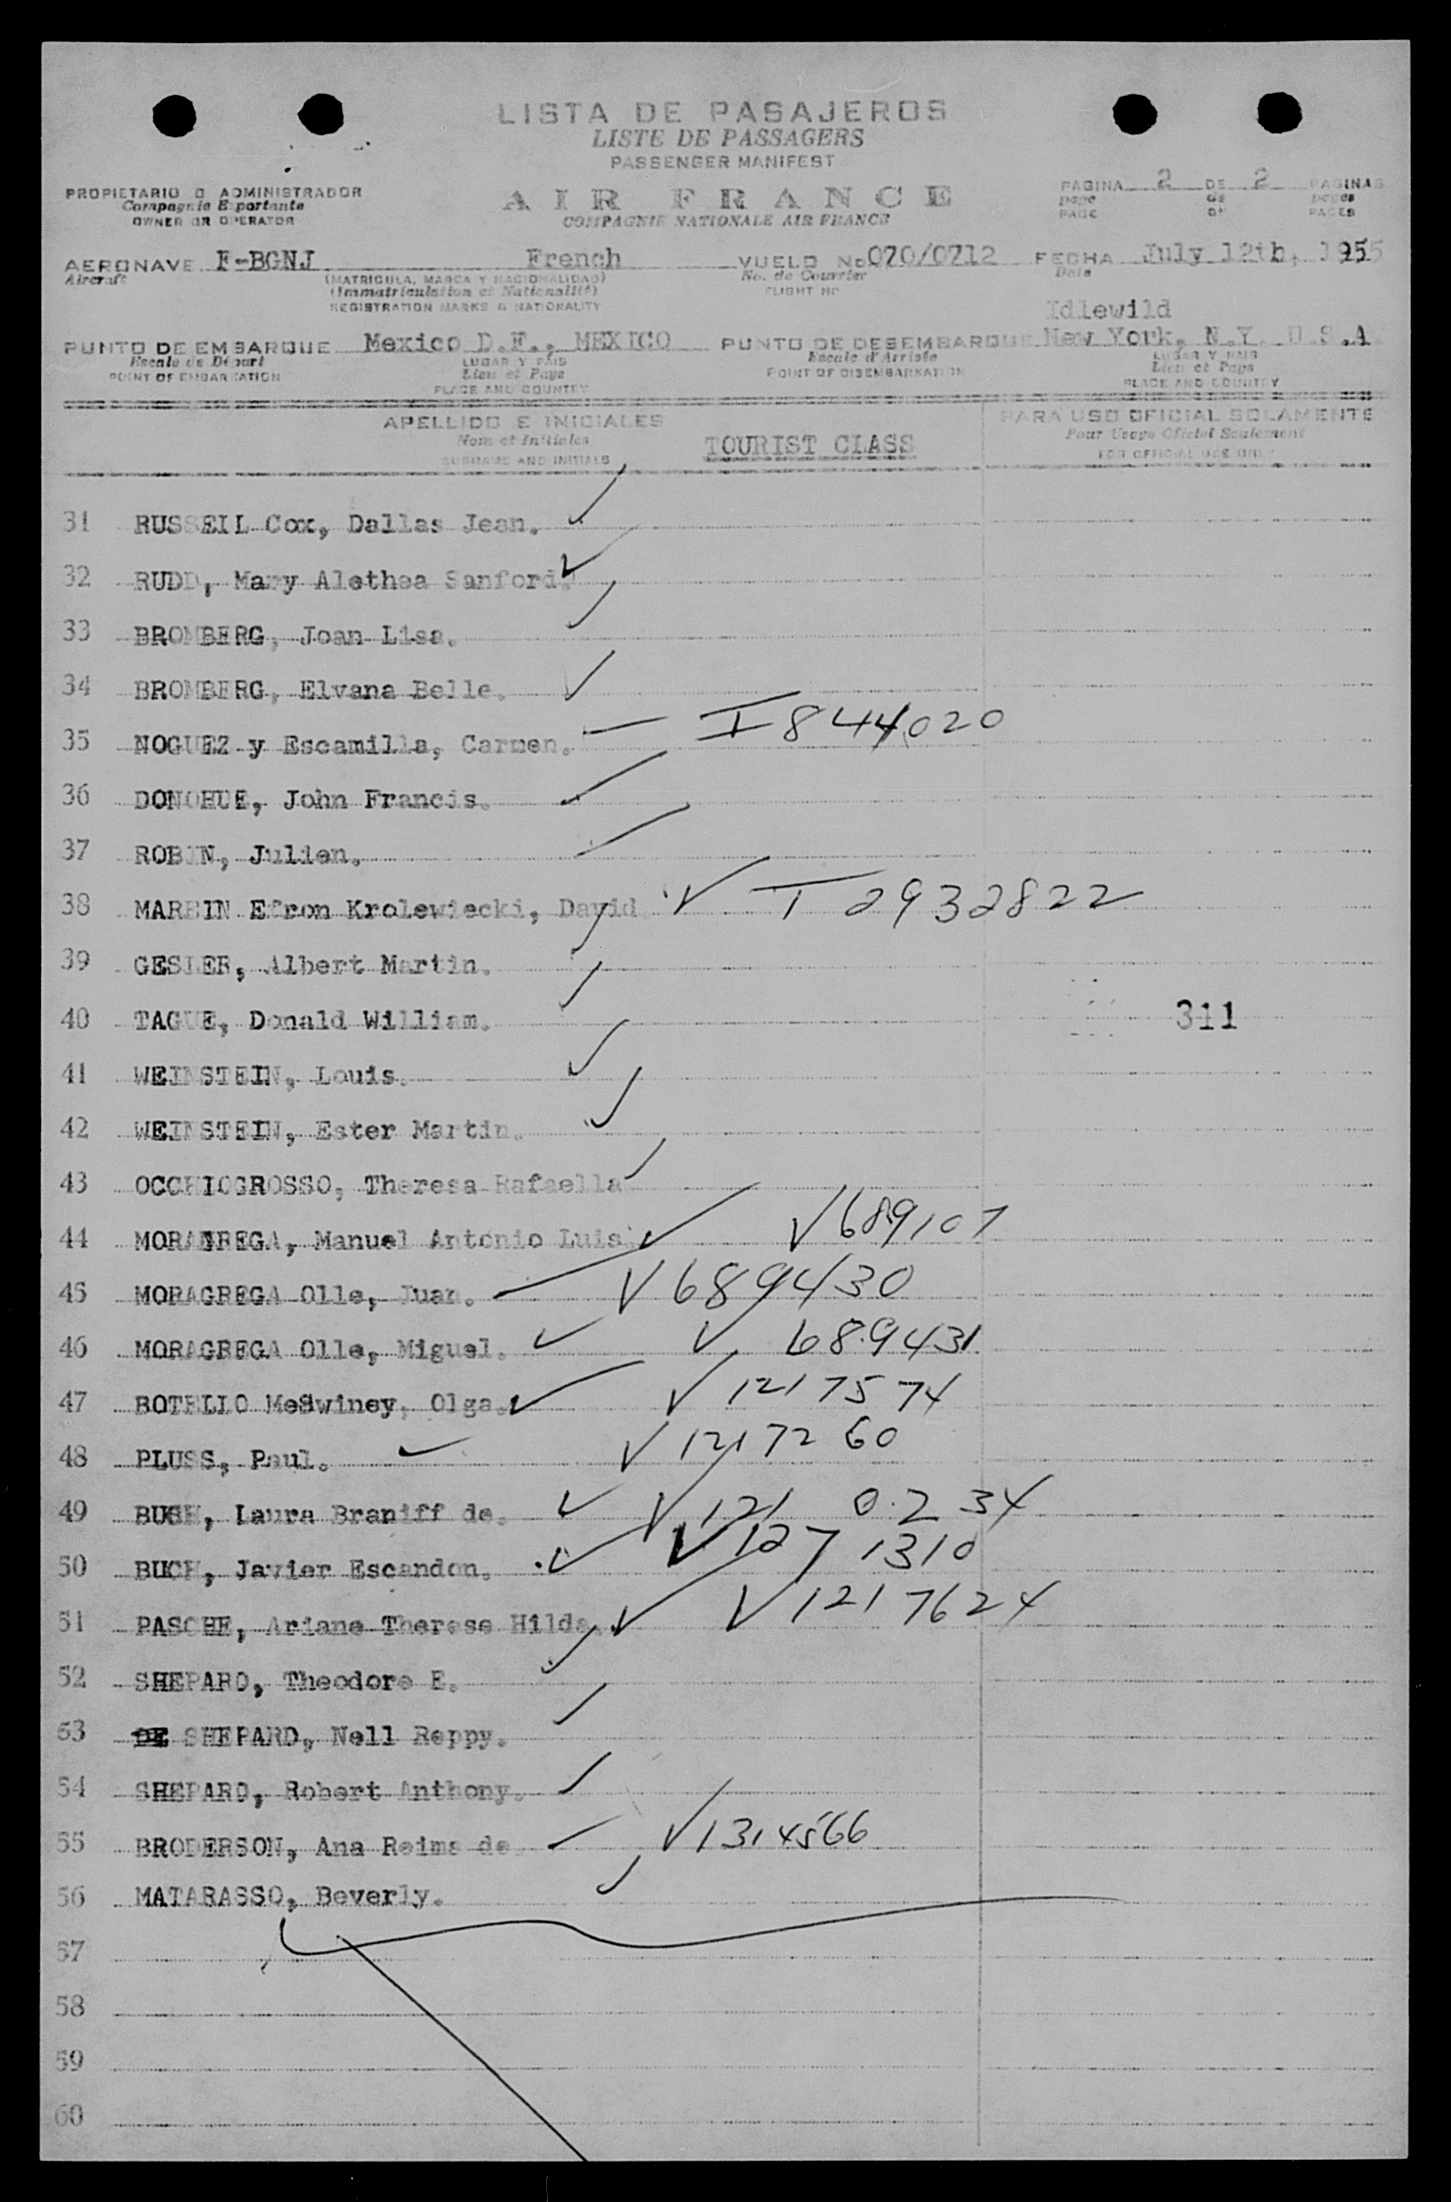 LISTA DE PASAJEROS
LISTE DE PASSAGERS
PASSENGER MANIFEST
PROPIETARIO O ADMINISTRADOR
Compagnie Exportante
OWNER OR OPERATOR
AIR FRANCE
COMPAGNIE NATIONALE AIR FRANCE
PAGINA 2 DE 2 PAGINAS
page de pages
PAGE OF PAGES
AERONAVE F-BGNJ French VUELO No 070/0712 FECHA July 12th, 1955
Aircraft (MATRICULA, MARCA Y NACIONALIDAD) No. de Courrier Date
(Immatriculation et Nationalité) FLIGHT No
REGISTRATION MARKS & NATIONALITY
Idlewild
PUNTO DE EMBARQUE Mexico D.F., MEXICO PUNTO DE DESEMBARQUE New York, N.Y. U.S.A
Escale de Départ LUGAR Y PAIS Escale d'Arrivée LUGAR Y PAIS
POINT OF EMBARKATION Lieu et Pays POINT OF DISEMBARKATION Lieu et Pays
PLACE AND COUNTRY PLACE AND COUNTRY
APELLIDO E INICIALES PARA USO OFICIAL SOLAMENTE
Nom et Initiales TOURIST CLASS Pour Usage Oficiel Seulement
SURNAME AND INITIALS FOR OFFICIAL USE ONLY
31 RUSSEIL Cox, Dallas Jean.
32 RUDD, Mary Alethea Sanford.
33 BROMBERG, Joan Lisa.
34 BROMBERG, Elvana Belle.
35 NOGUEZ y Escamilla, Carmen. I 844020
36 DONOHUE, John Francis.
37 ROBIN, Julien.
38 MARBIN Efron Krolewiecki, David. I 2932822
39 GESLER, Albert Martin.
40 TAGUE, Donald William. 311
41 WEINSTEIN, Louis.
42 WEINSTEIN, Ester Martin.
43 OCCHIOGROSSO, Theresa Rafaella
44 MORAGREGA, Manuel Antonio Luis. 689107
45 MORAGREGA Olle, Juan. 689430
46 MORAGREGA Olle, Miguel. 689431
47 BOTELLO McSwiney, Olga. 1217574
48 PLUSS, Paul. 1217260
49 BUCH, Laura Braniff de. 121 0234
50 BUCH, Javier Escandon. 127 1310
51 PASCHE, Ariane Therese Hilda. 1217624
52 SHEPARD, Theodore E.
53 DE SHEPARD, Nell Reppy.
54 SHEPARD, Robert Anthony.
55 BRODERSON, Ana Reims de 1314566
56 MATARASSO, Beverly.
57
58
59
60